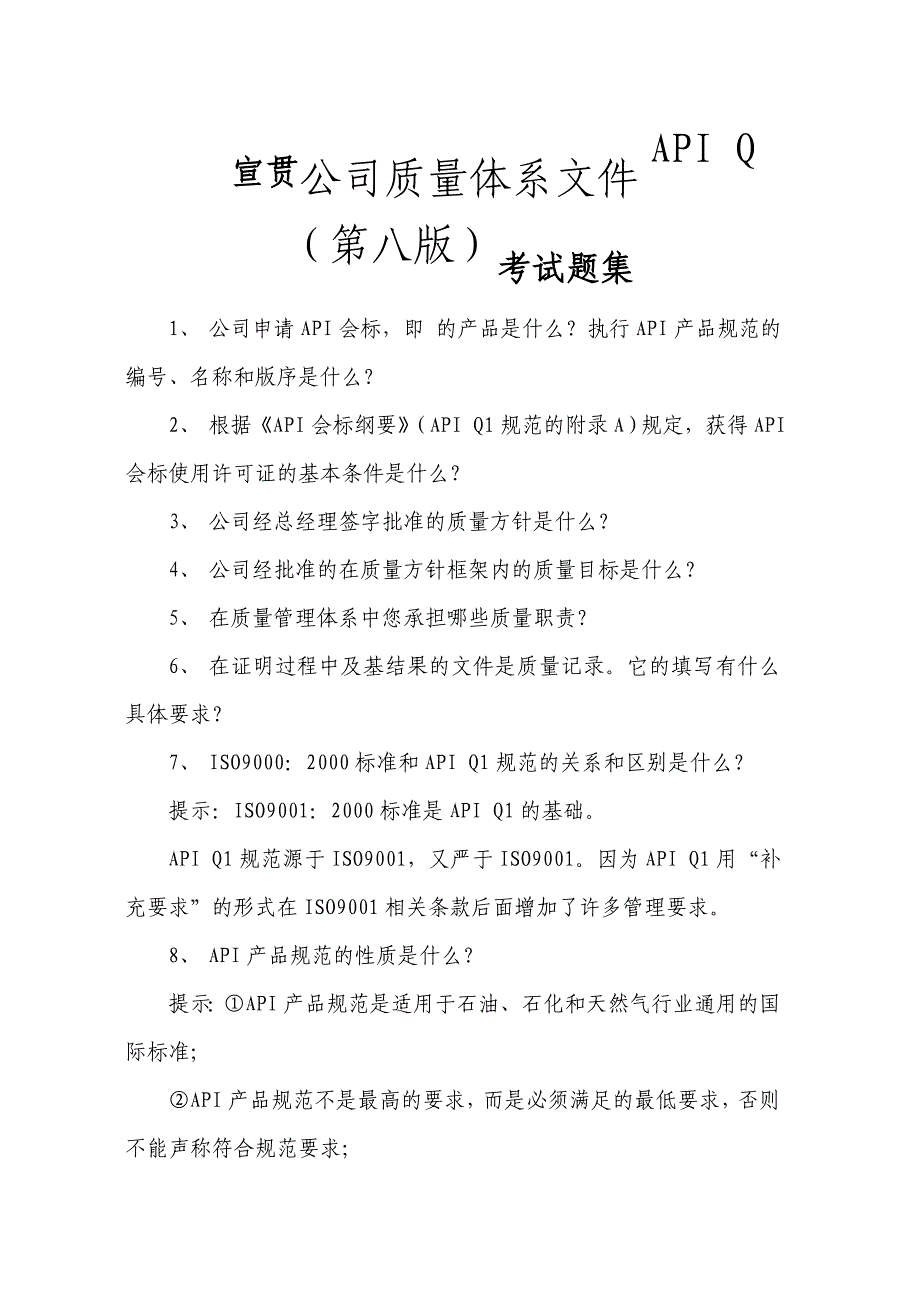 宣贯公司质量体系文件API Q
（第八版）考试题集
1、 公司申请API会标，即 的产品是什么？执行API产品规范的
编号、名称和版序是什么？
2、 根据《API会标纲要》（API Q1规范的附录A）规定，获得API
会标使用许可证的基本条件是什么？
3、 公司经总经理签字批准的质量方针是什么？
4、 公司经批准的在质量方针框架内的质量目标是什么？
5、 在质量管理体系中您承担哪些质量职责？
6、 在证明过程中及基结果的文件是质量记录。它的填写有什么
具体要求？
7、 ISO9000：2000标准和API Q1规范的关系和区别是什么？
提示：ISO9001：2000标准是API Q1的基础。
API Q1规范源于ISO9001，又严于ISO9001。因为API Q1用“补
充要求”的形式在ISO9001相关条款后面增加了许多管理要求。
8、 API产品规范的性质是什么？
提示：①API产品规范是适用于石油、石化和天然气行业通用的国
际标准；
②API产品规范不是最高的要求，而是必须满足的最低要求，否则
不能声称符合规范要求；